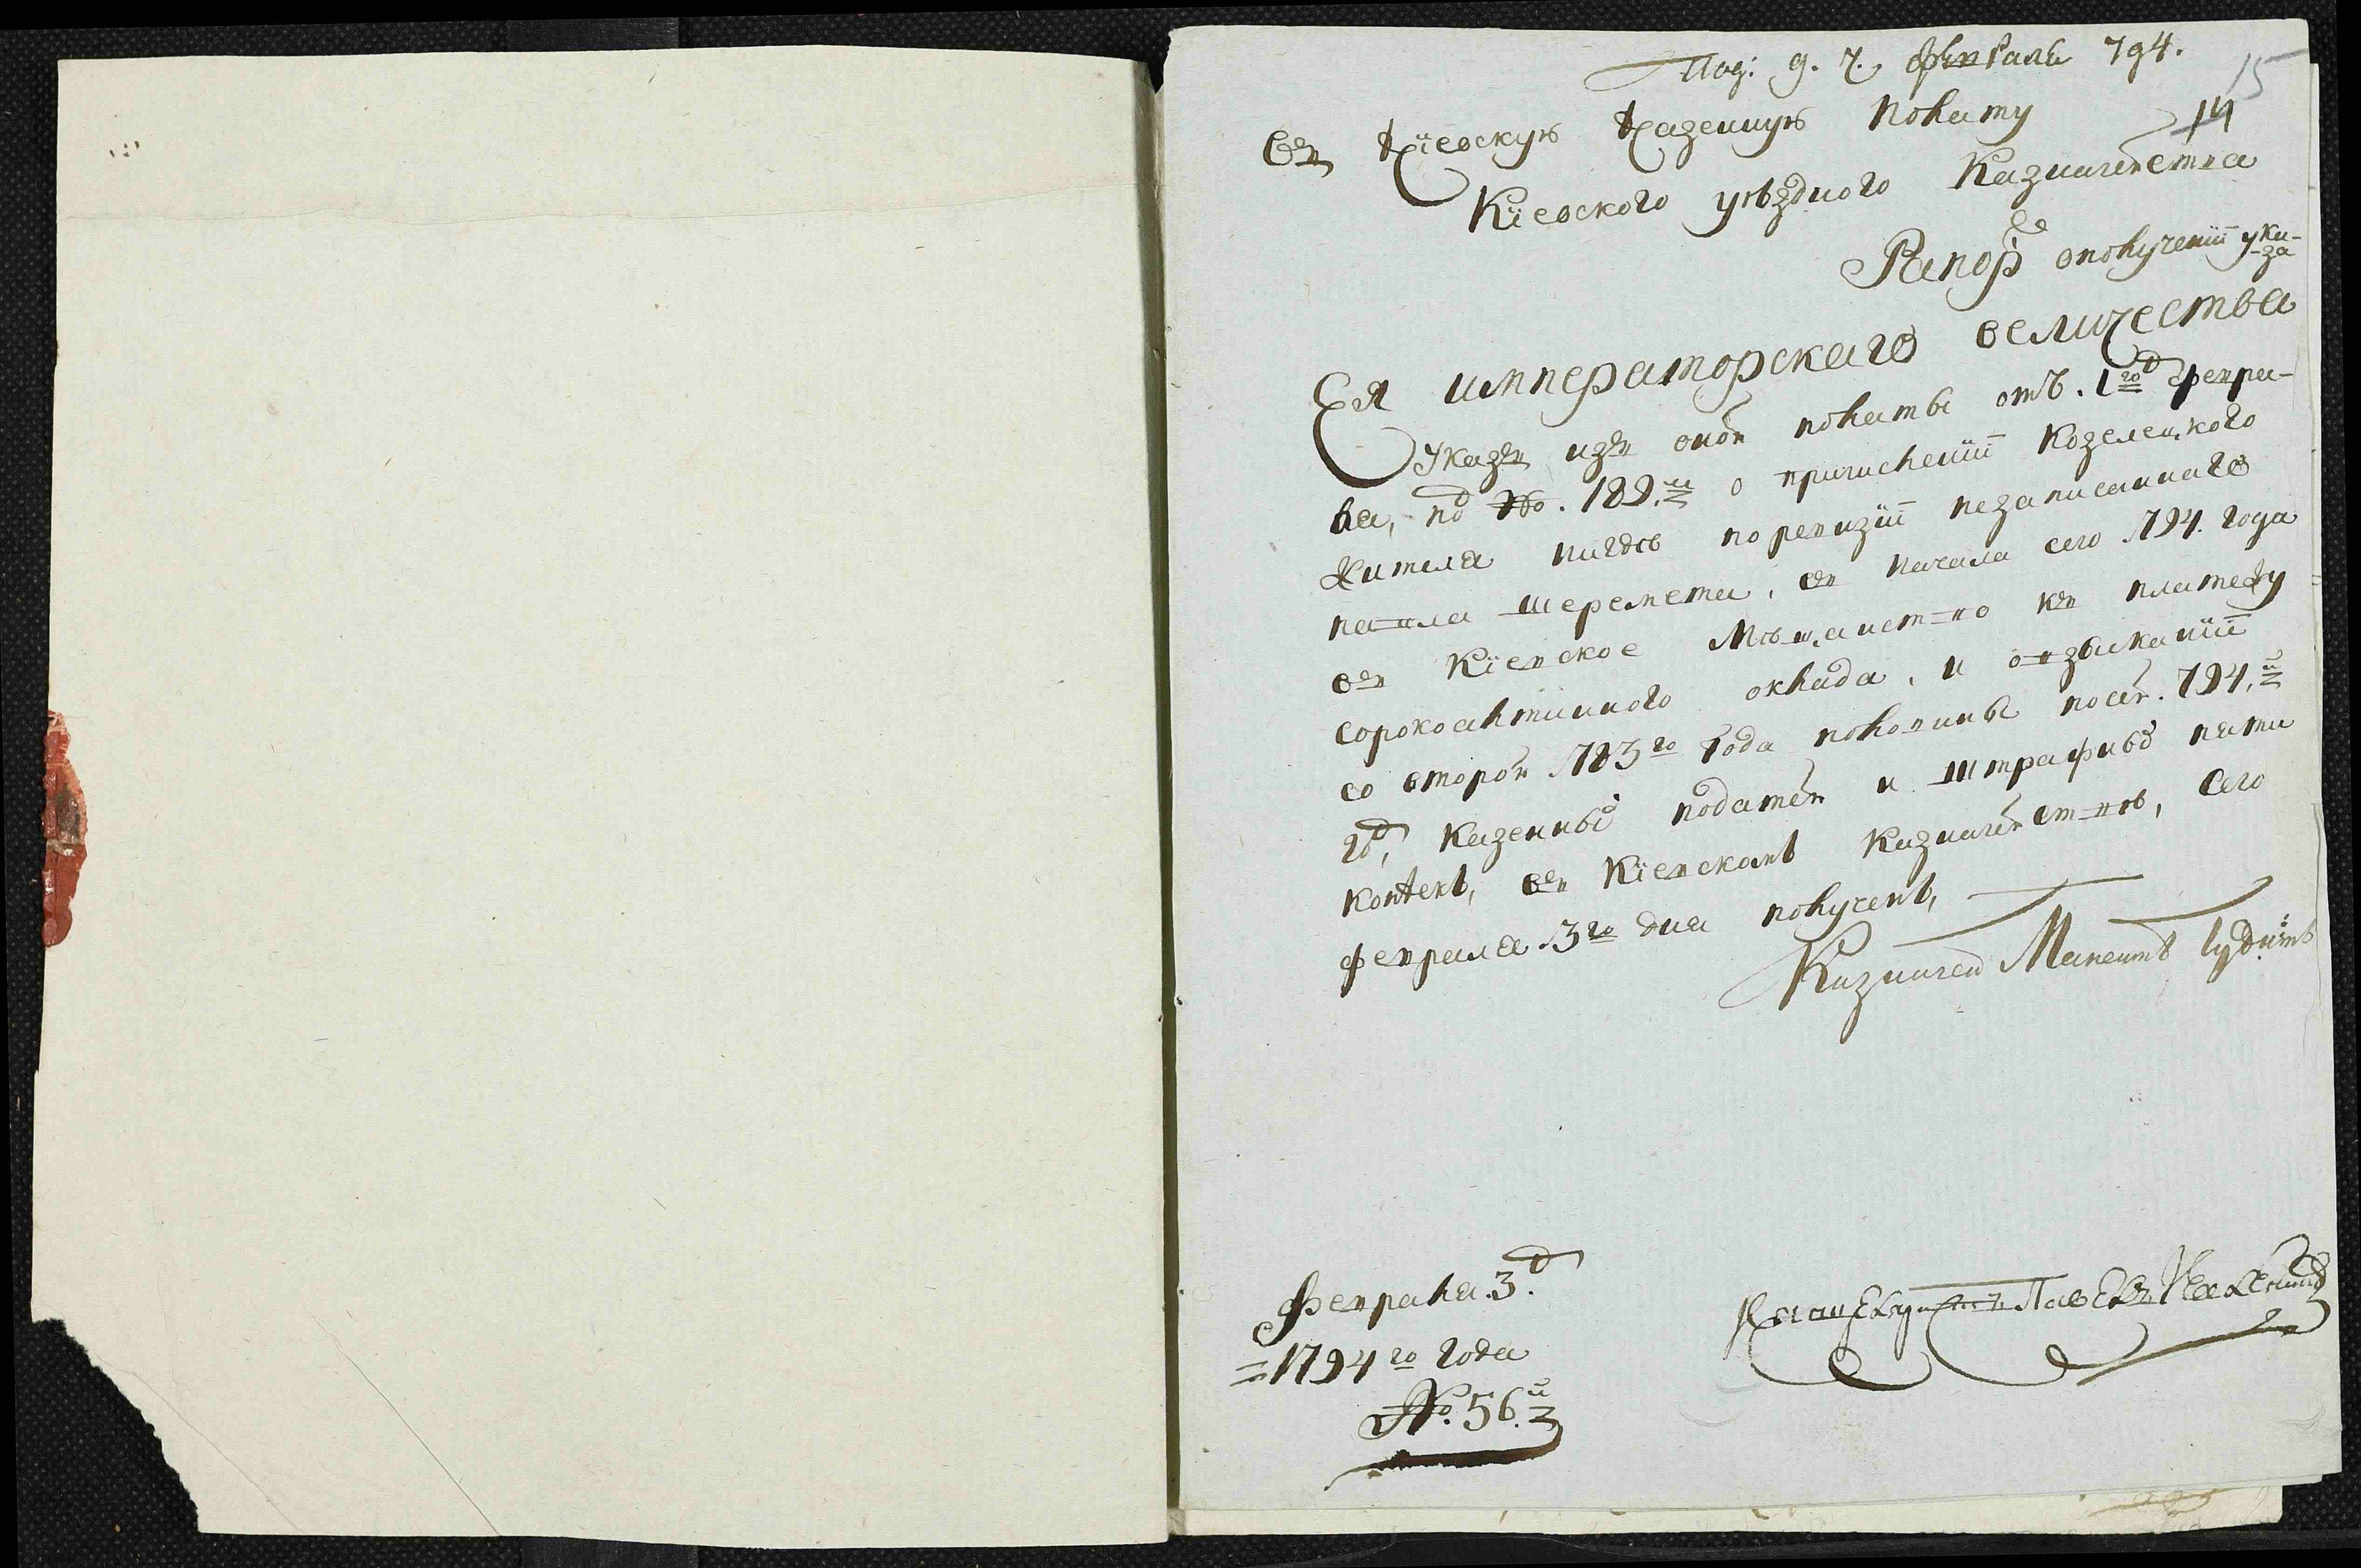 Под: д. 7. февраля 794.
15
14
Въ Кіевскую Казенную полату
Кіевского уѣздного Казначейства
Рапорт о полученіи ука-
-за
Ея императорскаго величества
Указъ изъ оной полаты отъ 1го февра-
ля, под №. 189.м о причисленіи козелецкого
жителя нигдѣ по ревизіи незаписаннаго
павла шеремета, въ начала сего 794. года
въ Кіевское мѣщанство къ платежу
сорокоалтинного оклада, и о взысканіи
со второй 783го года половины по сей 794.й
год, казенных податей и штрафных пяти
копѣекъ, въ Кіевскомъ Казначействѣ, сего
февраля 3го дня полученъ,
Казначей
Февраля 3.
1794го года
№. 56.й